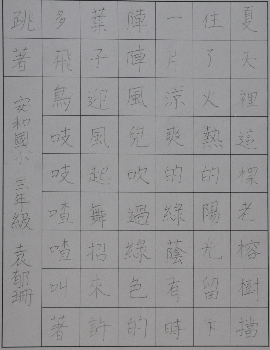 夏天裡這棵老榕樹擋
住了火熱的陽光留下
一片涼爽的綠蔭有時
陣陣風兒吹過綠色的
葉子迎風起舞招來許
多飛鳥吱吱喳喳叫著
跳著 安和國小 三年級